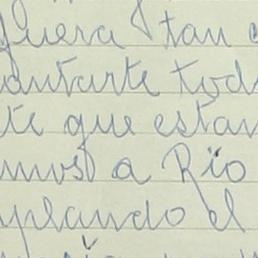 fuera tan
antarte tod
te que estam
mos a Rio
plando el